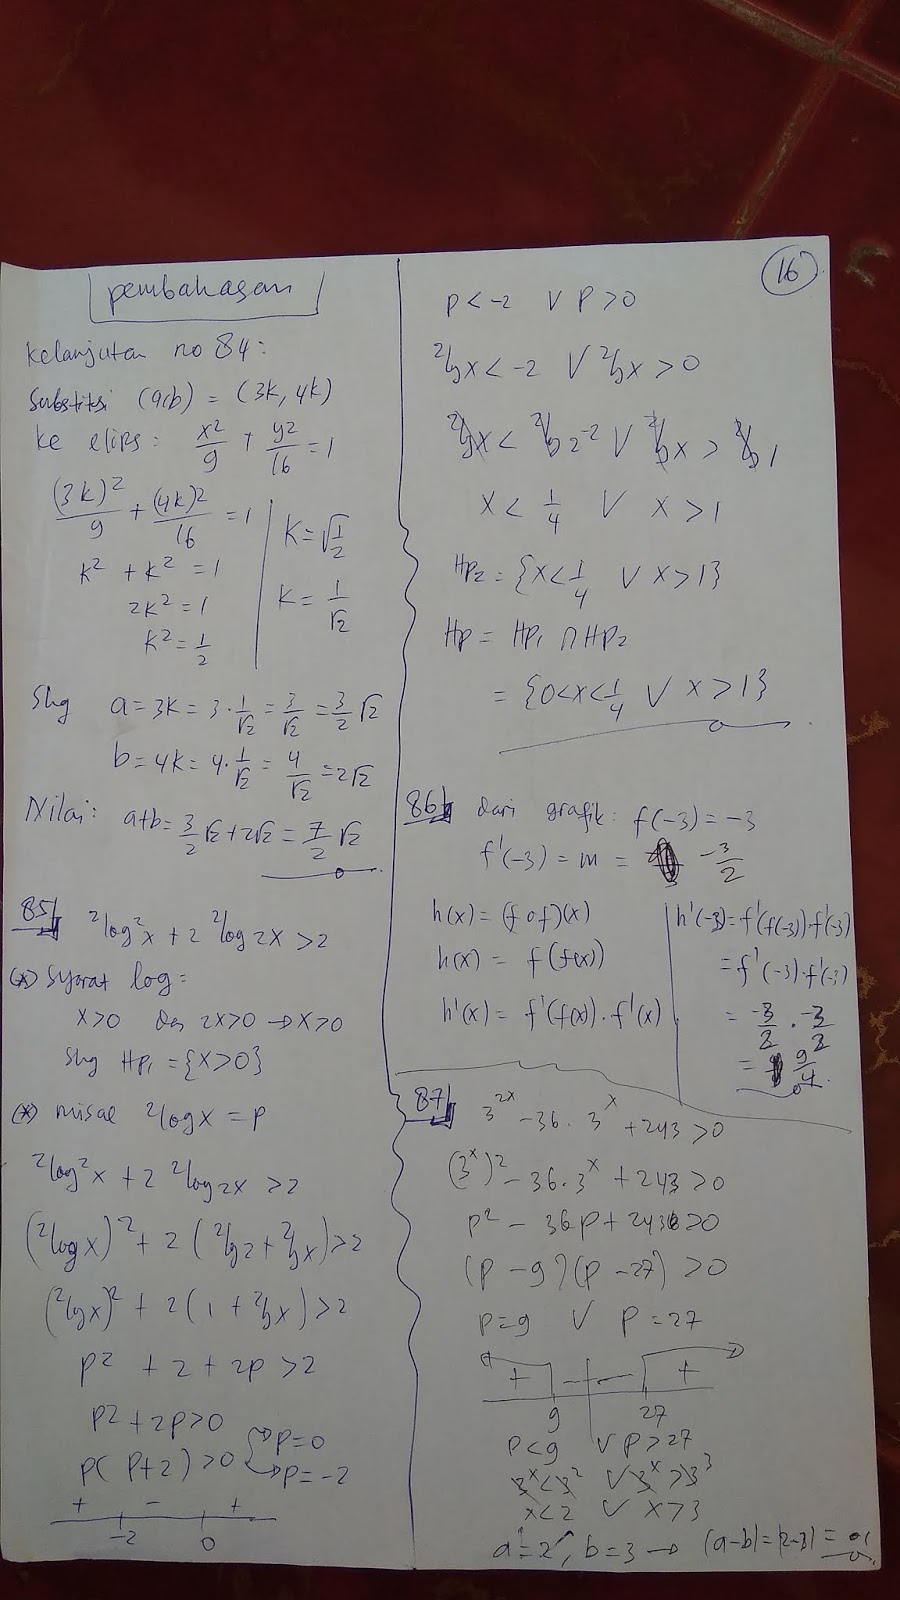 pembahasan
Kelanjutan no 84:
Substitsi (a,b) = (3k, 4k)
ke elips: x²/9 + y²/16 = 1
(3k)²/9 + (4k)²/16 = 1
k² + k² = 1
2k² = 1
k² = 1/2
k = √(1/2)
k = 1/√2
Shg a = 3k = 3 · 1/√2 = 3/√2 = 3/2 √2
b = 4k = 4 · 1/√2 = 4/√2 = 2√2
Nilai: a+b = 3/2 √2 + 2√2 = 7/2 √2
85 ²log²x + 2 ²log 2x > 2
(*) Syarat log:
x>0 dan 2x>0 → x>0
Shg Hp₁ = {x>0}
(*) misal ²log x = p
²log²x + 2 ²log 2x > 2
(²log x)² + 2 (²log 2 + ²log x) > 2
(²log x)² + 2 (1 + ²log x) > 2
p² + 2 + 2p > 2
p² + 2p > 0
p( p+2) > 0 → p = 0
→ p = -2
+ - +
-2 0
16
p < -2 ∨ p > 0
²log x < -2 ∨ ²log x > 0
²log x < ²log 2⁻² ∨ ²log x > ²log 1
x < 1/4 ∨ x > 1
Hp₂ = {x < 1/4 ∨ x > 1}
Hp = Hp₁ ∩ Hp₂
= {0 < x < 1/4 ∨ x > 1}
86 dari grafik: f(-3) = -3
f'(-3) = m = -3/2
h(x) = (f o f)(x)
h(x) = f(f(x))
h'(x) = f'(f(x)) · f'(x)
h'(-3) = f'(f(-3)) · f'(-3)
= f'(-3) · f'(-3)
= -3/2 · -3/2
= 9/4
87 3²ˣ - 36 · 3ˣ + 243 > 0
(3ˣ)² - 36 · 3ˣ + 243 > 0
p² - 36p + 243 > 0
(p - 9)(p - 27) > 0
p = 9 ∨ p = 27
+ - - +
9 27
p < 9 ∨ p > 27
3ˣ < 3² ∨ 3ˣ > 3³
x < 2 ∨ x > 3
a = 2, b = 3 → |a-b| = |2-3| =